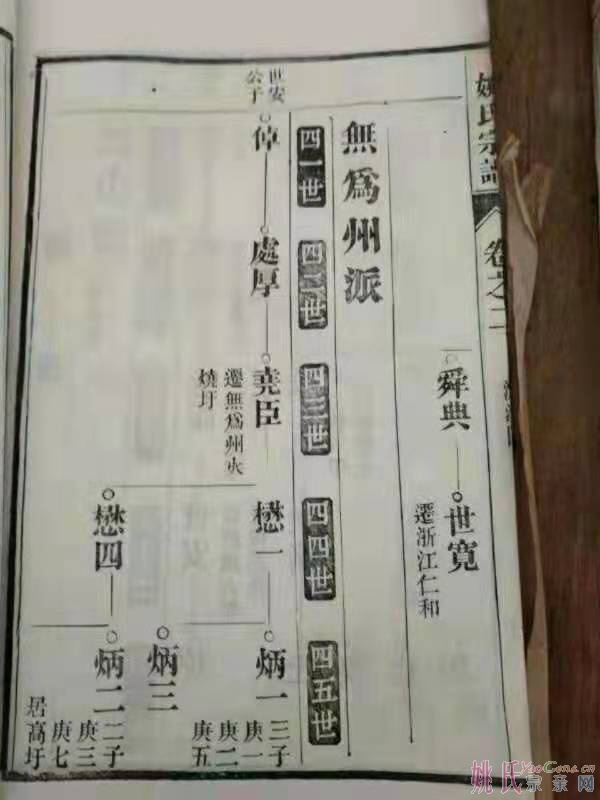 姚氏宗譜
卷之二
舜典
世寬
遷浙江仁和
無爲州派
四一世
四二世
四三世
四四世
四五世
世安
公子
倬
處厚
堯臣
遷無爲州火
燒圩
懋一
炳一
三子
庚一
庚二
庚五
炳三
懋四
炳二
二子
庚三
庚七
居高圩
姚氏宗亲网
YaoGens.cn